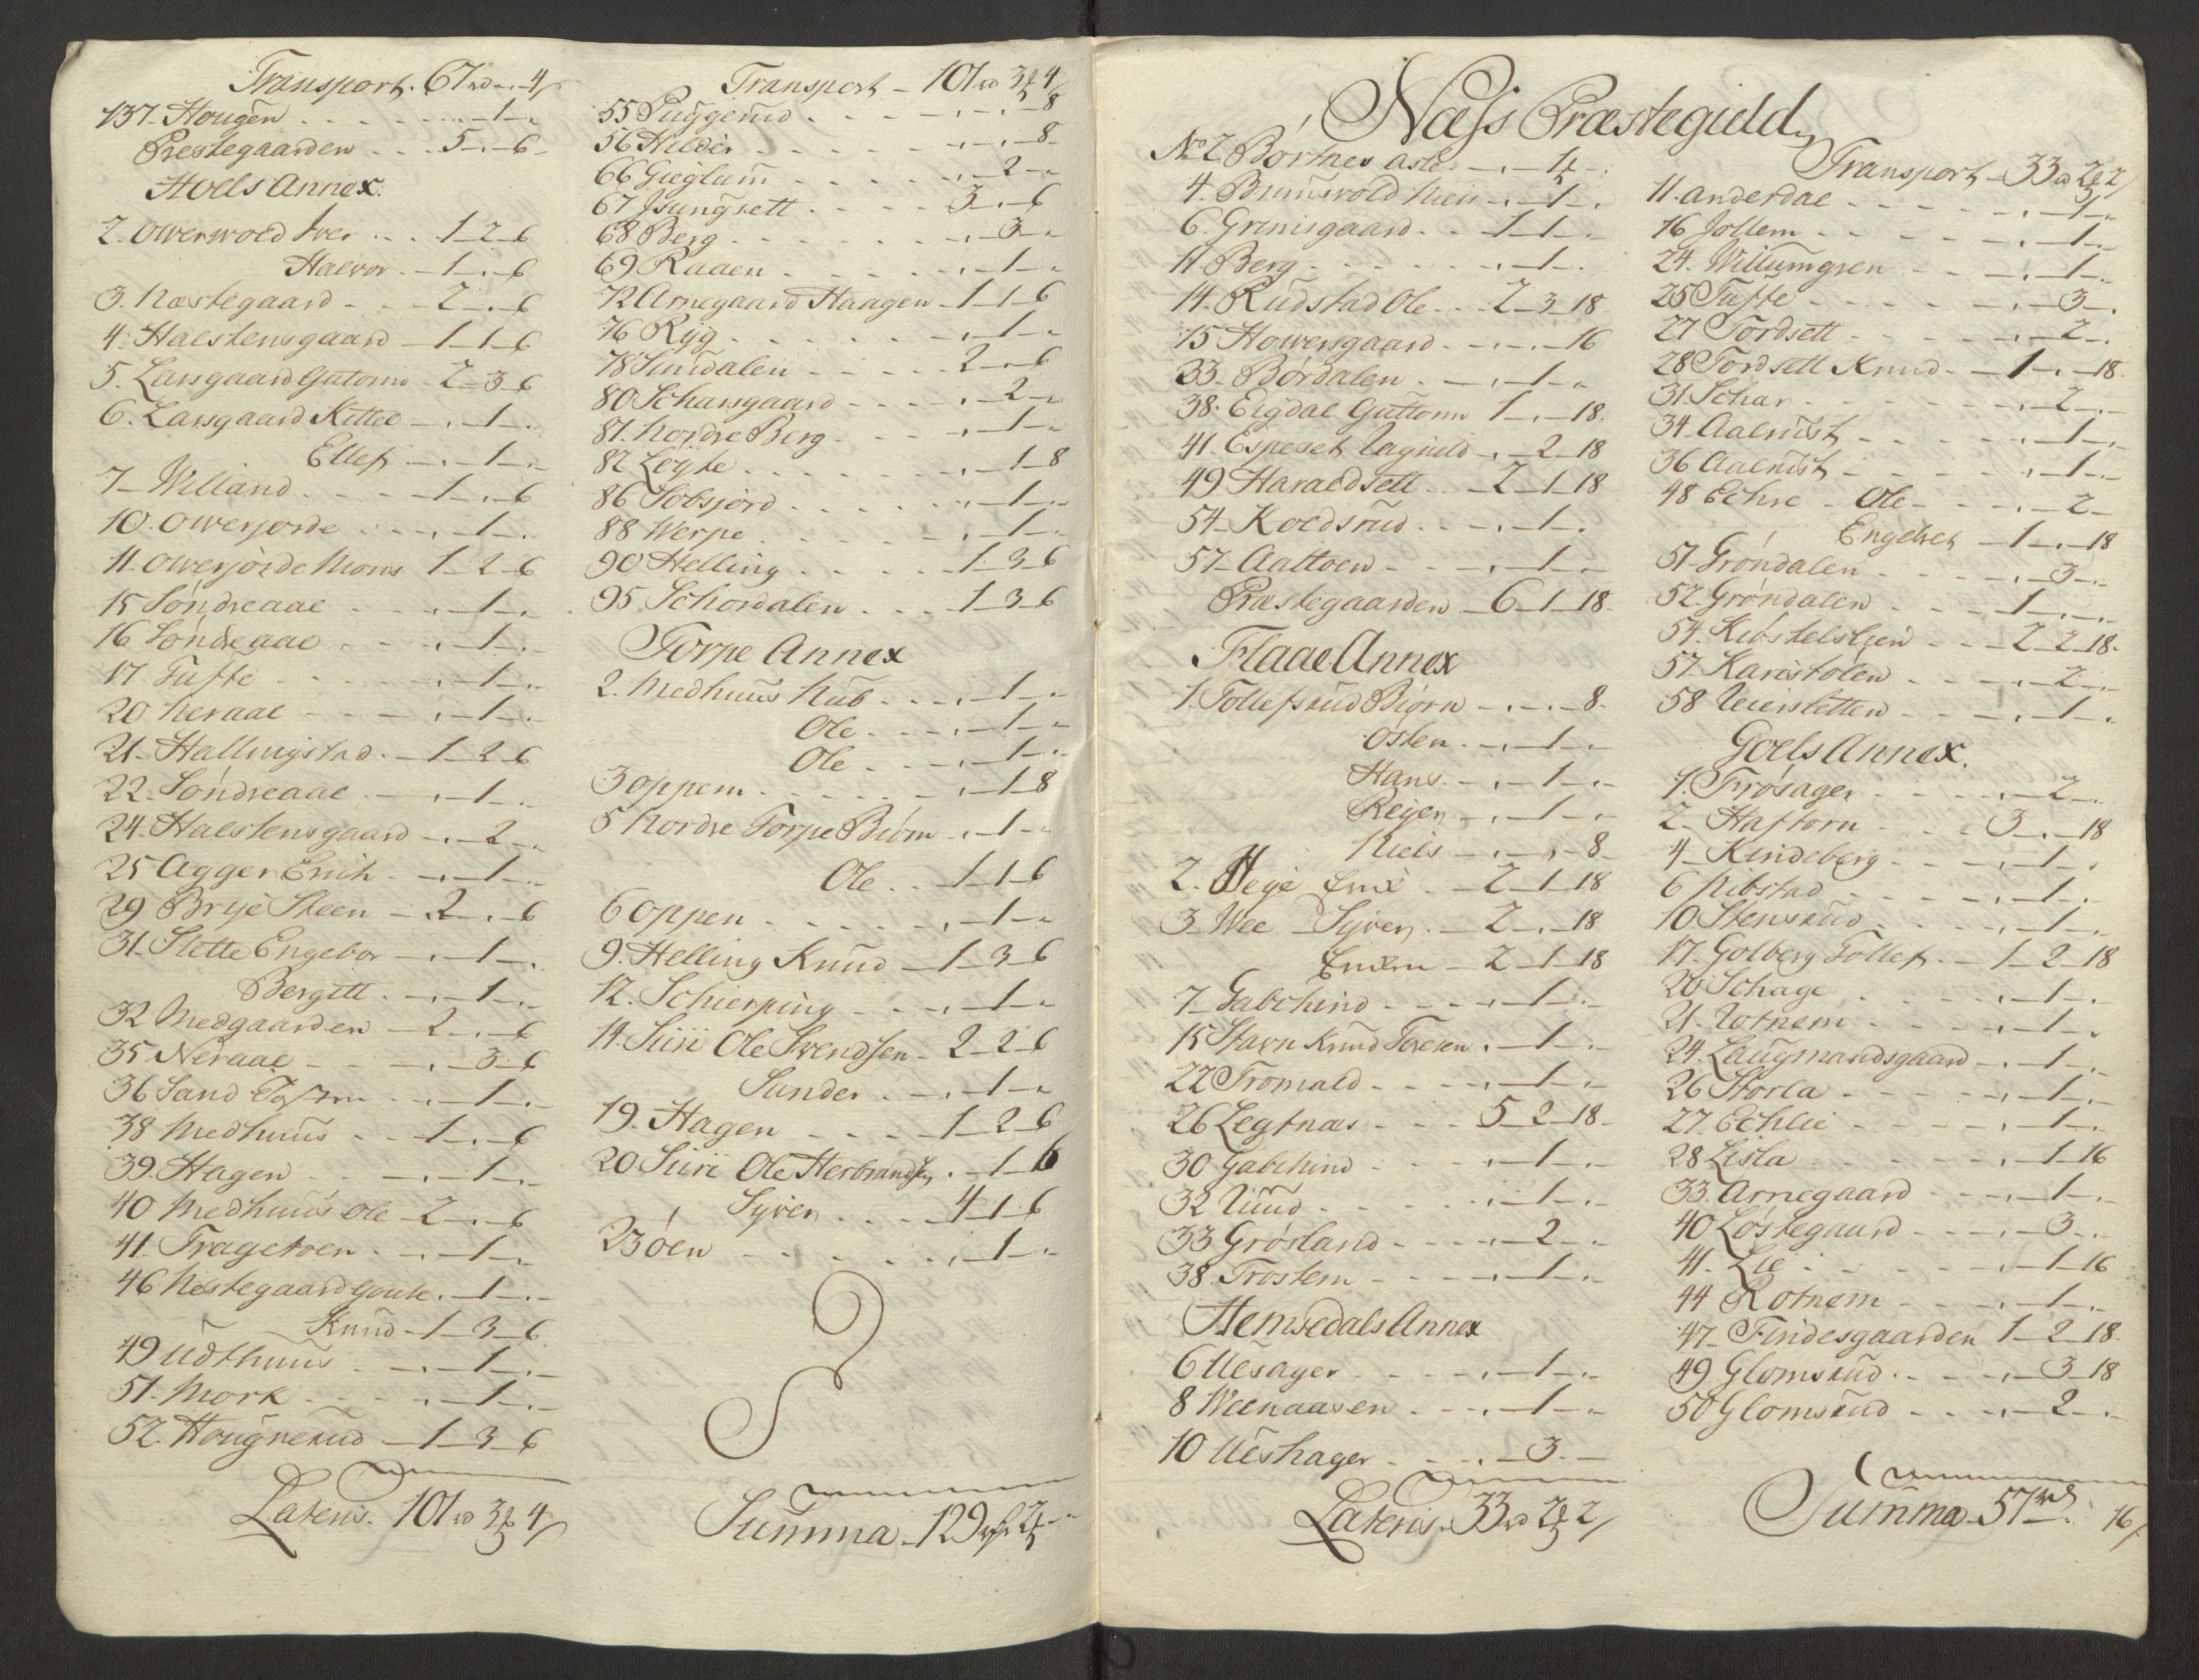 Transport. 67 rd - . - 4 s
137. Hougen . . . . - 1 - "
Prestegaarden . . . 5 - . - 6 -
Hoels Annex.
2. Owerwold Iver . . . 1 - 2 - 6
Halvor . - 1 - . - 6
3. Nestegaard - . . - 2 - . - 6
4. Halstensgaard - 1 - 1 - 6
5. Larsgaard Gutorm - 2 - 3 - 6
6. Larsgaard Kittel - . - 1 - .
Ellef - . - 1 - . -
7 - Williand . . . . - 1 - . - 6
10. Owerjorde . . . - . - 1 - .
11. Owerjorde Mons 1 - 2 - 6
15 Söndreaal . . . - . - 1 - .
16 Söndreaal . . . - . - 1 - .
17 Tufte . . . . - . - 1 - .
20 Neraal - - - - . - 1 - .
21. Hallingstad . - 1 - 2 - 6
22. Söndreaal . . - . - 1 - .
24. Halstensgaard - . - 2 - "
25 Agger Erich . - . - 1 - . -
29 Brye Steen - . 2 - . - 6
31. Slette Engebor - . - 1 - .
Bergitt . - . - 1 - . -
32 Medgaarden - 2 - . - 6
35 Neraal - - - . - 3 - 6
36 Sand - . - 1 - . -
38 Medhuus . . - 1 - . - 6
39. Hagen . . . - . - 1 - . -
40 Medhuus Ole - 2 - . - 6
41. Fragetoen . . - . - 1 - "
46 Nestegaard Goule . - 1 - . -
Knud - 1 - 3 - 6
49 Udthuus . . - . - 1 - . -
51. Mork . . . . - . - 1 - . -
52. Hougnerud - 1 - 3 - 6
Lateris. 101 rd 3 ß 4 s
Transport - 101 rd 3 ß 4 s
55 Puggerud . . . . - . - . - 8
56 Hilder . . . . . - . - . - 8 -
66 Gieglum . . . . . - 2 - "
67 Isungsett . . . . 3 - . - 6
68 Berg . . . . . . - . - 3 - "
69 Raaen . . . . . - . - 1 - "
72 Arnegaard Haagen - 1 - 1 - 6
76 Ryg . . . . . . - . - 1 - "
78 Sundalen . . . . . 2 - . - 6
80 Scharsgaard . . . - . - 2 - "
81. Nordre Berg . . . - . - 1 - "
82 Løyte . . . . . . - . - 1 - 8
86 Sobsjord . . . . . - . - 1 - .
88 Werpe . . . . . . - . - 1 - .
90 Helling . . . . . - 1 - 3 - 6
95 Schordalen . . . - 1 - 3 - 6
Torpe Annex
2. Medhuus Nub . . . - . - 1 - "
Ole . . . - . - 1 - "
Ole . . . - . - 1 - "
3 Oppem . . . . . . - . - 1 - 8
5 Nordre Torpe Biörn - . - 1 - "
Ole . . - 1 - 1 - 6
6 Oppen . . . . . . - . - 1 - "
9. Helling Knud - 1 - 3 - 6
12. Schierping . . . - . - 1 - "
14. Siire Ole Svendsen - 2 - 2 - 6
Sander . . - . - 1 - "
19. Hagen . . . . - 1 - 2 - 6
20 Siire Ole Herbrandsen . - 1 - 6
Syver . . . . 4 - 1 - 6
23 Öen . . . . . . - . - 1 - "
Summa - 129 rd 2 ß -
Næss Præstegield
No 2. Bortnes asle . - . - 1 ß - .
4. Brunsvold Niels - . - 1 - .
6. Grimsgaard . . - 1 - 1 - "
11. Berg . . . . . . - . - 1 - .
14. Rudstad Ole . . 2 - 3 - 18
15 Howersgaard . . - . - . - 16
33. Bördalen . - . - 1 - "
38. Eigdal Guttorm 1 - . - 18.
41. Espeset - . - 2 - 18
49 Haraldsett . . - 2 - 1 - 18
54. Koldsrud . . . - . - 1 - .
57. Aattoen - - - - . - 1 - .
Præstegaarden - 6 - 1 - 18.
Flaae Annex
1. Tollefsrud Biörn - . - . - 8.
östen . - . - 1 - "
Hans . - . - 1 - . -
Reyer . - . - 1 - .
Niels - . - . - 8 -
2. Heye - 2 - 1 - 18
3 Wee Syver . - 2 - . - 18
- 2 - 1 - 18
7 - Gabchind - - - . - 1 - . -
15 Starn Knud . - 1 - .
22 Tromald - - - - . - 1 - . -
26 Legtnæs - - - 5 - 2 - 18 -
30 Gabchind - - - . - 1 - . -
32 Ruud . . . . . . - . - 1 - . -
33 Grösland - - - - . - 2 - "
38. Trostem - - - - . - 1 - . -
Hemsedals Annex
6 Ulsager - - - - . - 1 - . -
8 Weenaasen - - - . - 1 - "
10 Ulshager . - - . . - 3 - -
Lateris. 33 rd 2 ß 2 s
Transport - 33 rd 2 ß 2 s
11. Anderdal . . . . . - . - 1 - "
16 Jollem . . . . . . - . - 1 - .
24. Willumgren - - - . - 1 - .
25 Tuffe . . . . . . - . - 3 - .
27 Tordsett . . . . . - . - 2 - .
28 Tordsett Knud . - 1 - . - 18.
31. Schar . . . . . . - . - 2 - . -
34. Aalrust . . . . . - . - 1 - . -
36 Aalrust . . . . . - . - 1 - . -
48 Echre - Ole - - - . - 2 -
Engebret - 1 - . - 18
51. Gröndalen . . . . . - . - 3 - . -
52. Gröndalen . . . . - 1 - . - . -
54. Kirstelslien . . - 2 - 2 - 18.
57. Karistolen . . . . - . - 2 - . -
58 Ueisletten . . . . - . - 1 - .
Goels Annex.
1. Frösager . . . . . - . - 2 - "
2. Haftorn . . . . 3 - . - 18
4. Kindeberg - - - - . - 1 - .
6 Nibstad . . . . . - . - 1 - .
10 Stensrud . . . . . - . - 1 - .
17. Golberg Tollef . - 1 - 2 - 18
20 Schage . . . . . - . - 1 - .
21. Rotnem . . . . . - . - 1 - "
24. Laugmandsgaard - . - 1 - . -
26 Storla - - - - - . - 1 - . -
27. Echlie - - - - . - 1 - .
28 Lisla . . . . . . - . - 1 - 16
33. Arnegaard - - - . - 1 - . -
40 Löstegaard - - - . - 3 - .
41. Lie . . . . . . - . - 1 - 16
44 Rotnem - - - - . - 1 - . -
47. Findesgaarden 1 - 2 - 18.
49 Glomsrud . - - . - 3 - 18
50 Glomsrud - - - . - 2 - .
Summa - 57 rd - . 16 s